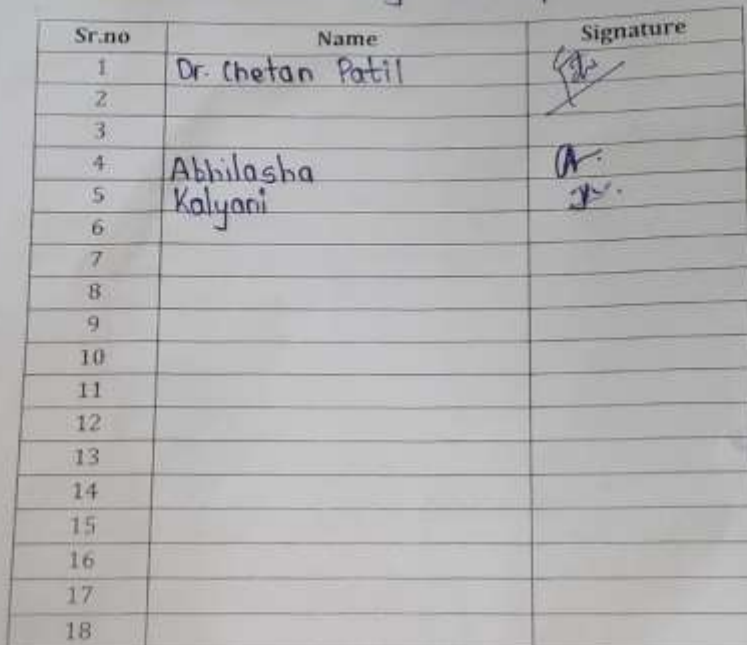 Sr.no Name Signature
1 Dr. Chetan Patil
2
3
4 Abhilasha
5 Kalyani
6
7
8
9
10
11
12
13
14
15
16
17
18